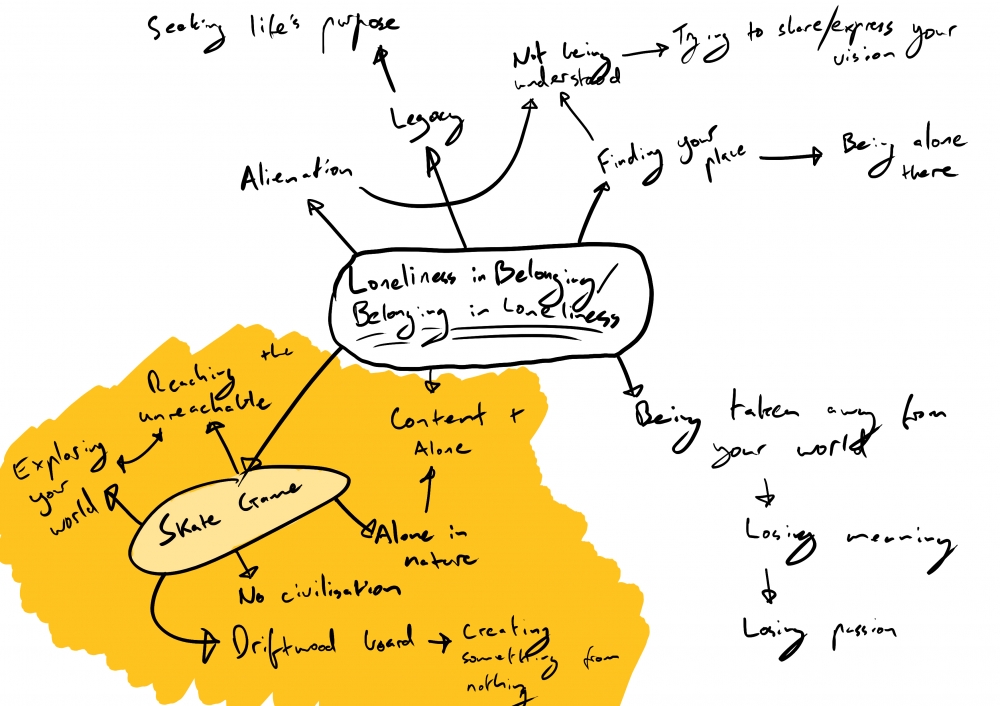 Seeking life's purpose
Legacy
Alienation
Not being
understood
Trying to share/express your
vision
Finding your
place
Being alone
there
Loneliness in Belonging/
Belonging in Loneliness
Reaching the
unreachable
Exploring
your
world
Skate Game
Content +
Alone
Alone in
nature
No civilisation
Driftwood board
Creating
something from
nothing
Being taken away from
your world
Losing meaning
Losing passion